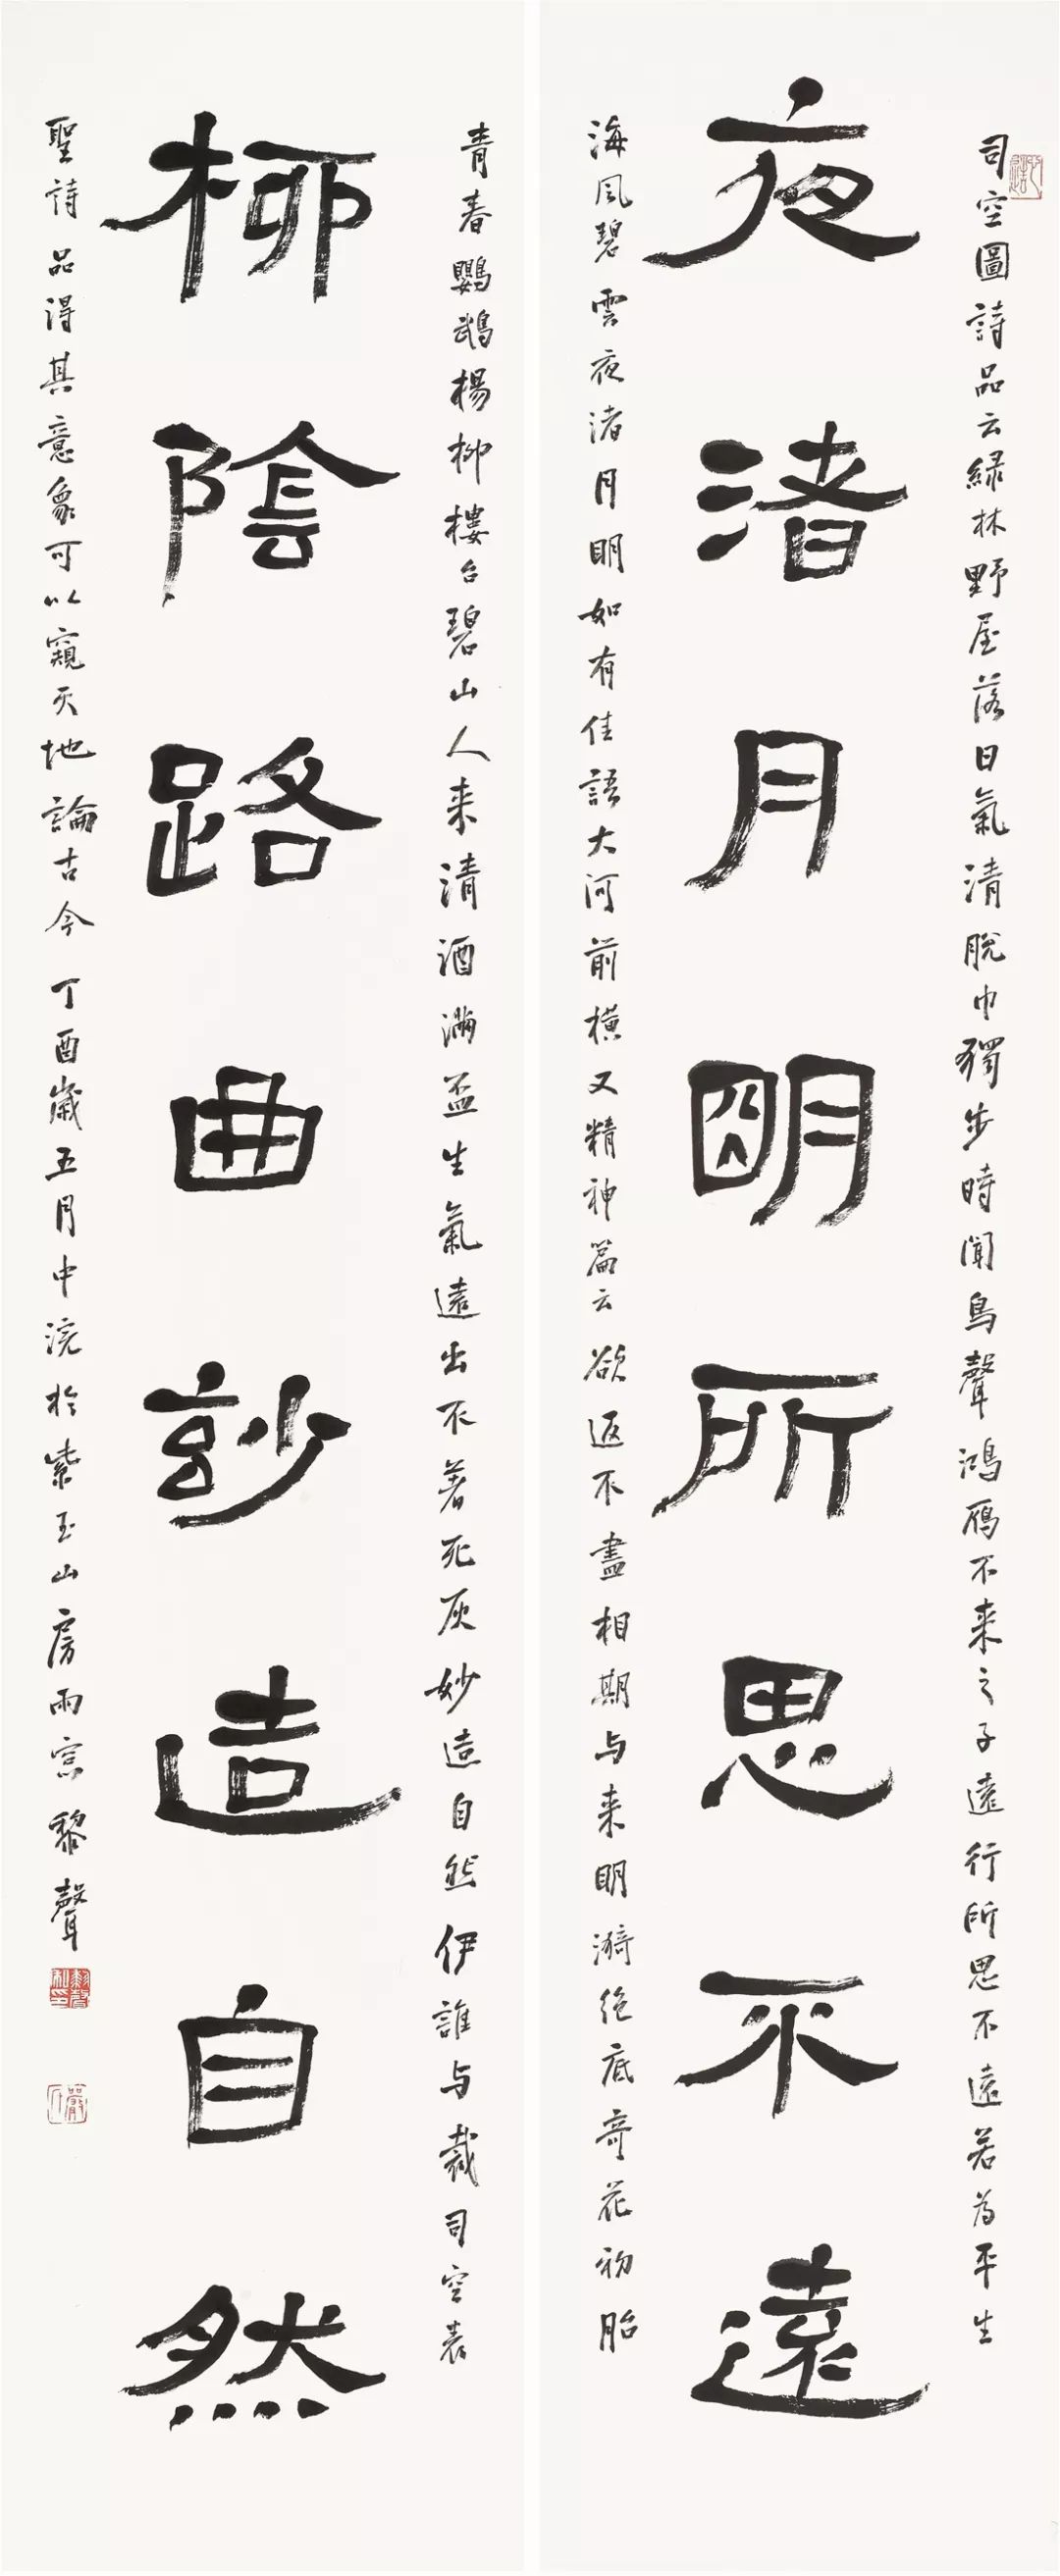 司空圖詩品云緑林野屋落日氣清脫巾獨步時聞鳥聲鴻雁不来之子遠行所思不遠若為平生
夜渚月明所思不遠
海風碧雲夜渚月明如有佳語大河前横又精神篇云欲返不盡相期与来明漪絶底奇花初胎
青春鸚鵡楊柳樓台碧山人来清酒滿盃生氣遠出不著死灰妙造自然伊誰与裁司空表
柳陰路曲玅造自然
聖詩品得其意象可以窺天地論古今 丁酉歲五月中浣於紫玉山房雨窓黎聲